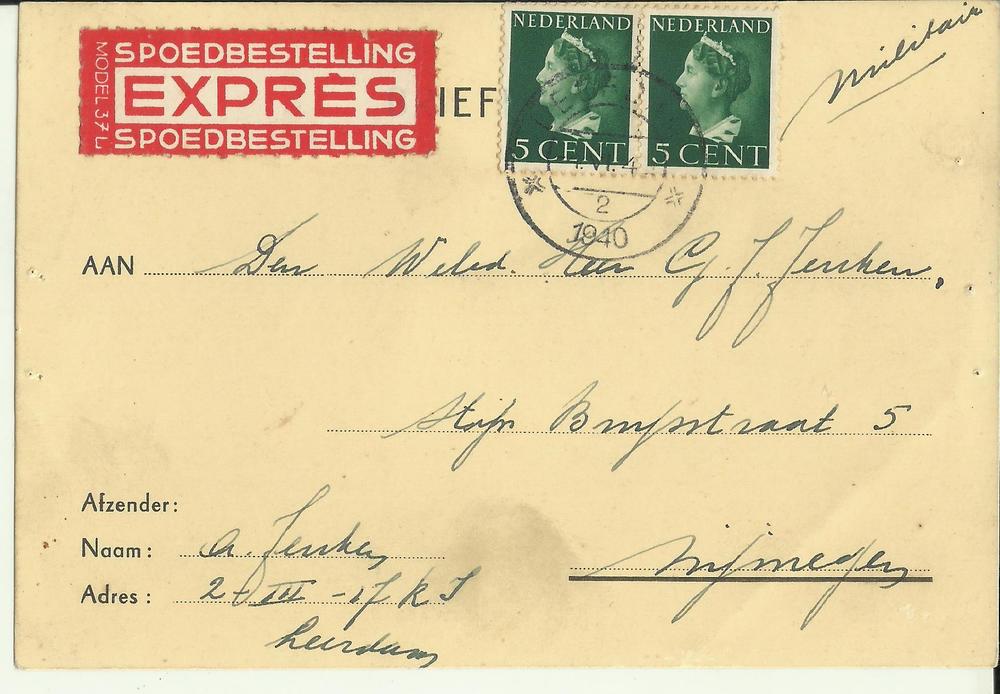 SPOEDBESTELLING
MODEL 37 L
EXPRÈS
SPOEDBESTELLING
IEF
NEDERLAND NEDERLAND
5 CENT 5 CENT
Militair
VI.4
2
1940
AAN Den Weled. Heer
Bruijsstraat 5
Nijmegen
Afzender:
Naam: A. Jenken
Adres: 2-III-17 R I
Leerdam